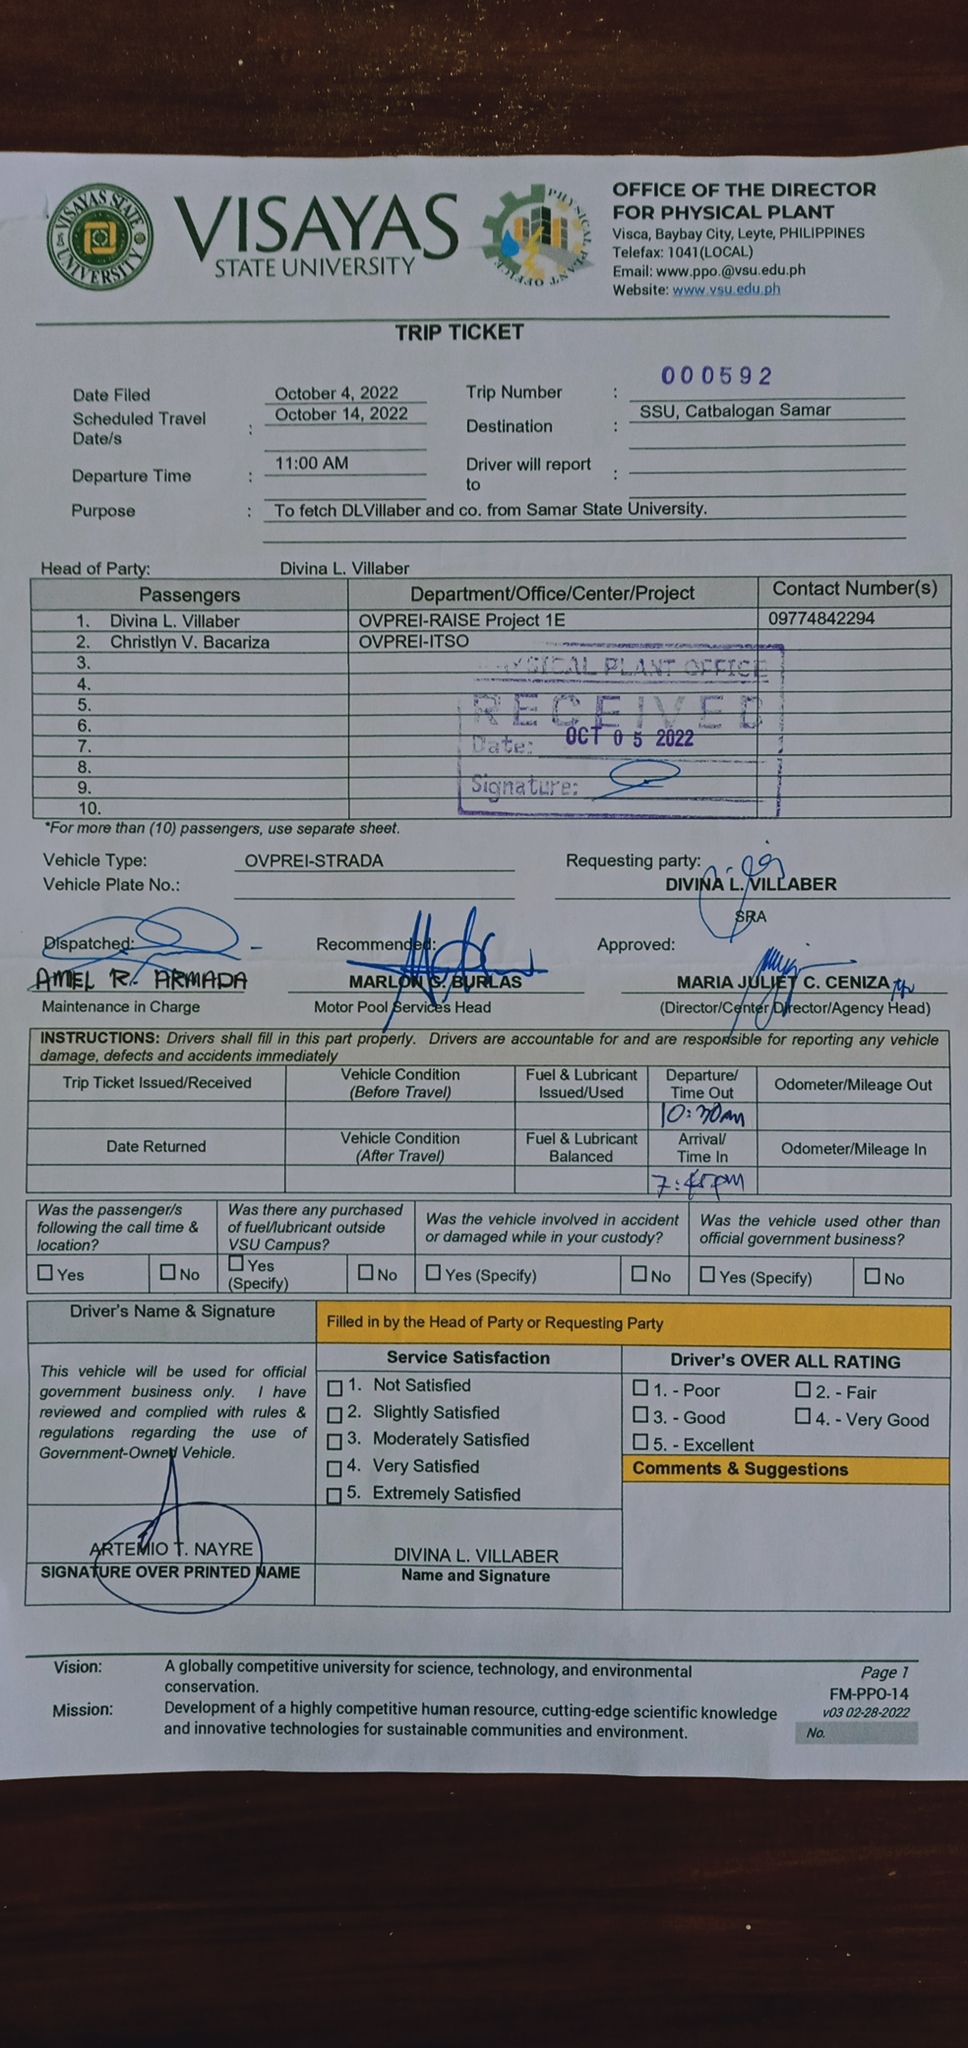 VISAYAS STATE UNIVERSITY
VISAYAS
STATE UNIVERSITY
PHYSICAL PLANT OFFICE
OFFICE OF THE DIRECTOR
FOR PHYSICAL PLANT
Visca, Baybay City, Leyte, PHILIPPINES
Telefax: 1041(LOCAL)
Email: www.ppo.@vsu.edu.ph
Website: www.vsu.edu.ph
TRIP TICKET
Date Filed October 4, 2022 Trip Number : 000592
Scheduled Travel Date/s : October 14, 2022 Destination : SSU, Catbalogan Samar
Departure Time : 11:00 AM Driver will report to :
Purpose : To fetch DLVillaber and co. from Samar State University.
Head of Party: Divina L. Villaber
Passengers Department/Office/Center/Project Contact Number(s)
1. Divina L. Villaber OVPREI-RAISE Project 1E 09774842294
2. Christlyn V. Bacariza OVPREI-ITSO
3.
4.
5.
6.
7.
8.
9.
10.
PHYSICAL PLANT OFFICE
RECEIVED
Date: OCT 05 2022
Signature:
*For more than (10) passengers, use separate sheet.
Vehicle Type: OVPREI-STRADA Requesting party:
Vehicle Plate No.: DIVINA L. VILLABER
SRA
Dispatched: Recommended: Approved:
AMEL R. ARMADA MARLON G. BURLAS MARIA JULIET C. CENIZA
Maintenance in Charge Motor Pool Services Head (Director/Center Director/Agency Head)
INSTRUCTIONS: Drivers shall fill in this part properly. Drivers are accountable for and are responsible for reporting any vehicle
damage, defects and accidents immediately
Trip Ticket Issued/Received Vehicle Condition (Before Travel) Fuel & Lubricant Issued/Used Departure/ Time Out Odometer/Mileage Out
10:30am
Date Returned Vehicle Condition (After Travel) Fuel & Lubricant Balanced Arrival/ Time In Odometer/Mileage In
7:45pm
Was the passenger/s following the call time & location? Was there any purchased of fuel/lubricant outside VSU Campus? Was the vehicle involved in accident or damaged while in your custody? Was the vehicle used other than official government business?
Yes No Yes (Specify) No Yes (Specify) No Yes (Specify) No
Driver's Name & Signature Filled in by the Head of Party or Requesting Party
This vehicle will be used for official
government business only. I have
reviewed and complied with rules &
regulations regarding the use of
Government-Owned Vehicle.
ARTEMIO T. NAYRE
SIGNATURE OVER PRINTED NAME
Service Satisfaction
1. Not Satisfied
2. Slightly Satisfied
3. Moderately Satisfied
4. Very Satisfied
5. Extremely Satisfied
DIVINA L. VILLABER
Name and Signature
Driver's OVER ALL RATING
1. - Poor 2. - Fair
3. - Good 4. - Very Good
5. - Excellent
Comments & Suggestions
Vision: A globally competitive university for science, technology, and environmental
conservation.
Mission: Development of a highly competitive human resource, cutting-edge scientific knowledge
and innovative technologies for sustainable communities and environment.
Page 1
FM-PPO-14
v03 02-28-2022
No.